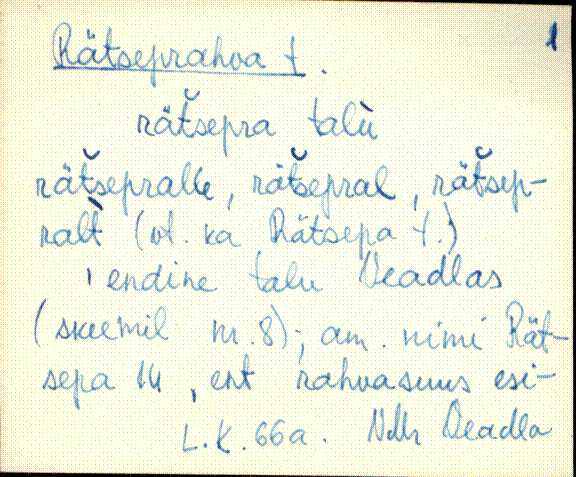 1
Rätseprahva t.
rät̆sepra talù
rät̆sepralle, rät̆sepral, rät̆sep-
ralt̀ (vt. ka Rätsepa t.)
endine talu Veadlas
(skeemil nr. 8); am. nimi Rät-
sepa 14, ent rahvasuus esi-
L.K. 66a. Ndr Veadla